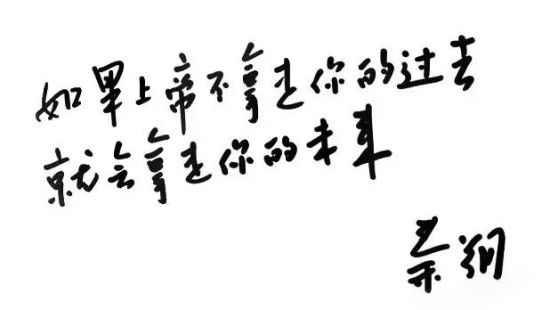 如果上帝不拿走你的过去
就会拿走你的未来